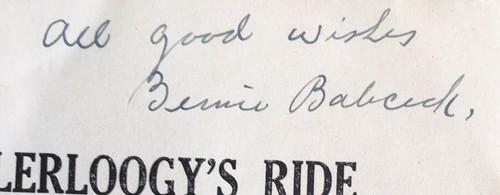 All good wishes
Bernie Babcock,
LERLOOGY'S RIDE